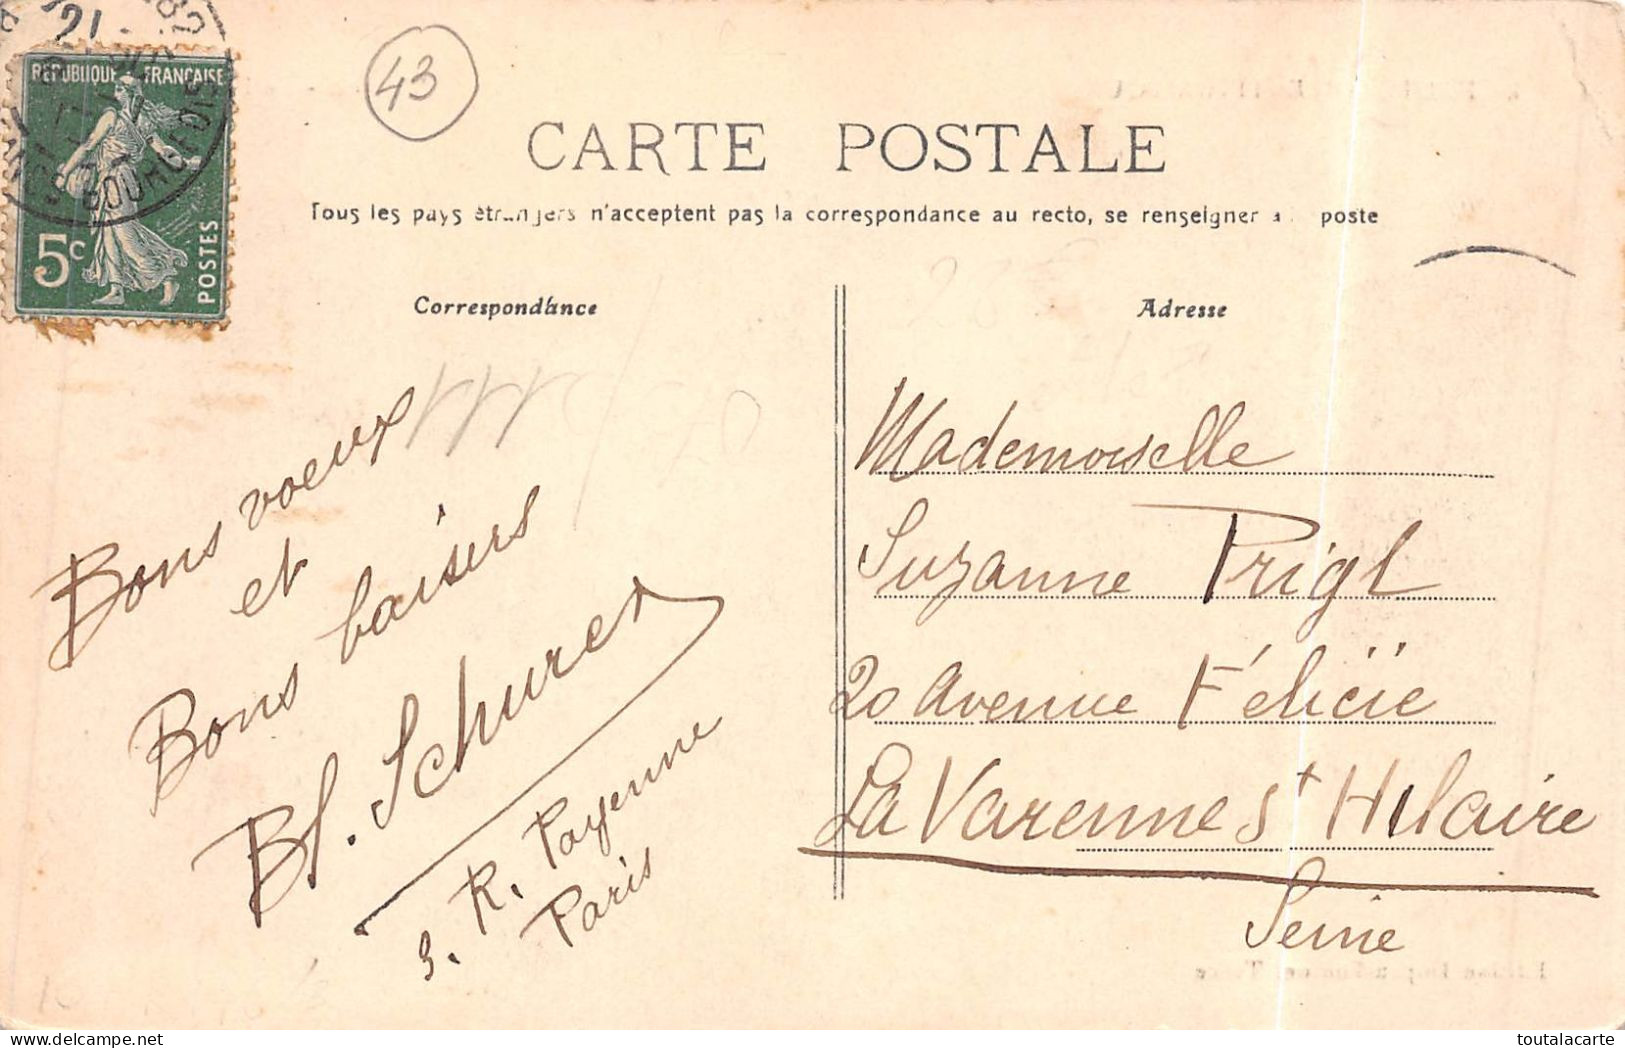 RÉPUBLIQUE FRANÇAISE
5c
POSTES
43
CARTE POSTALE
Tous les pays étrangers n'acceptent pas la correspondance au recto, se renseigner à la poste
Correspondance
Bons voeux
et
Bons baisers
Bl. Schurer
3. R. Payenne
Paris
Adresse
Mademoiselle
Suzanne Prigl
20 Avenue Félicie
La Varenne St Hilaire
Seine
toutalacarte